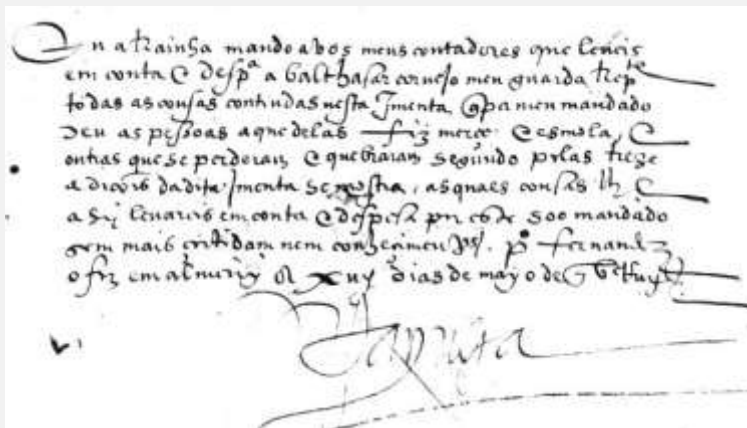 Eu a Rainha mando a vos meus contadores que leveis
em conta e despª a balthasar cornejo meu guarda Repte
todas as cousas contiudas nesta Jmenta q per meu mandado
deu as pessoas a que delas fiz merce e esmola, e
outras que se perderam e quebraram segundo pelas treze
adicois da dita Jmenta se mostra, as quaes cousas lh
asy levareis em conta e despesa por este soo mandado
sem mais certidam nem conhecimen pº fernandez
o fez em almeirim a xuj dias de mayo de
Raynha